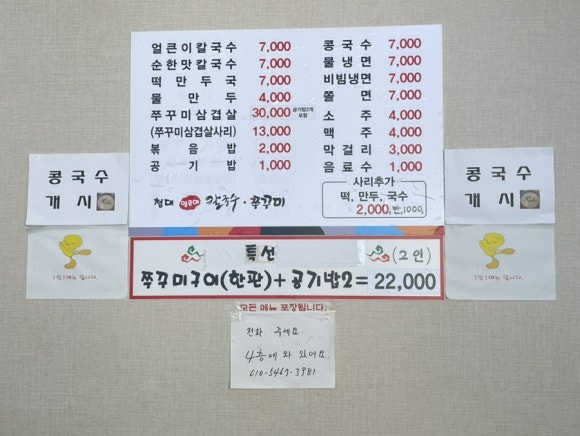 얼큰이칼국수 7,000
순한맛칼국수 7,000
떡만두국 7,000
물만두 4,000
쭈꾸미삼겹살 30,000 공기밥2개 포함
(쭈꾸미삼겹살사리) 13,000
볶음밥 2,000
공기밥 1,000
콩국수 7,000
물냉면 7,000
비빔냉면 7,000
쫄면 7,000
소주 4,000
맥주 4,000
막걸리 3,000
음료수 1,000
사리추가
떡, 만두, 국수
2,000, 반,1000,
칼국수·쭈꾸미
콩국수
개시
콩국수
개시
특선
(2인)
쭈꾸미구이(한판)+공기밥2=22,000
모든 메뉴 포장됩니다.
전화 주세요
4층에 와 있어요
010-5467-3981